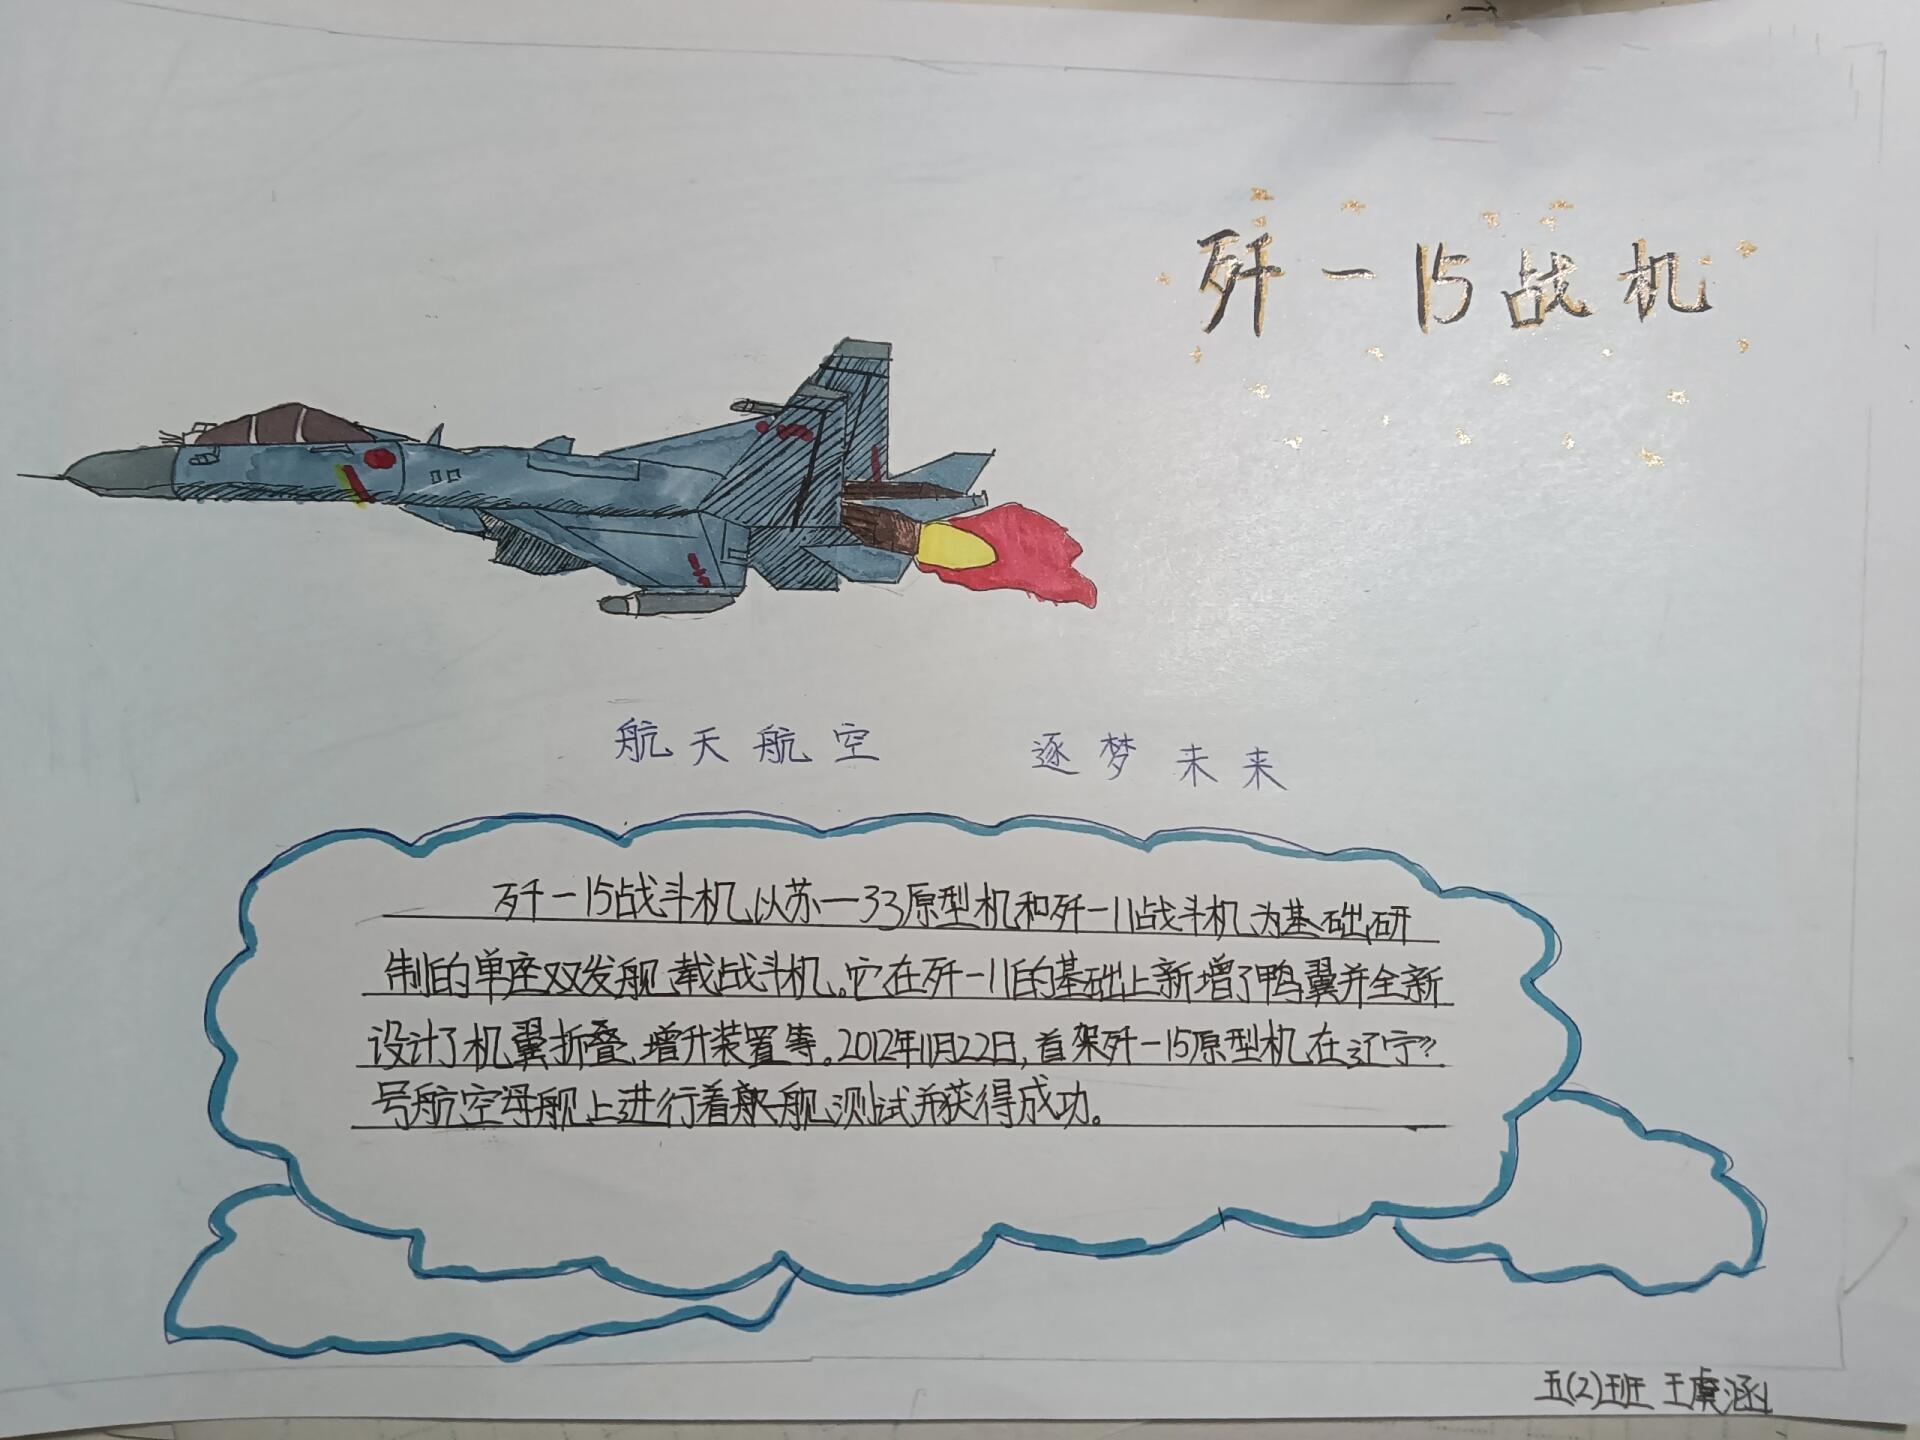 歼一15战机
航天航空 逐梦未来
歼一15战斗机以苏一33原型机和歼一11战斗机为基础研
制的单座双发舰载战斗机。它在歼一11的基础上新增了鸭翼并全新
设计了机翼折叠、增升装置等。2012年11月22日,首架歼一15原型机在辽宁”
号航空母舰上进行着舰测试并获得成功。
五(2)班 王虞涵